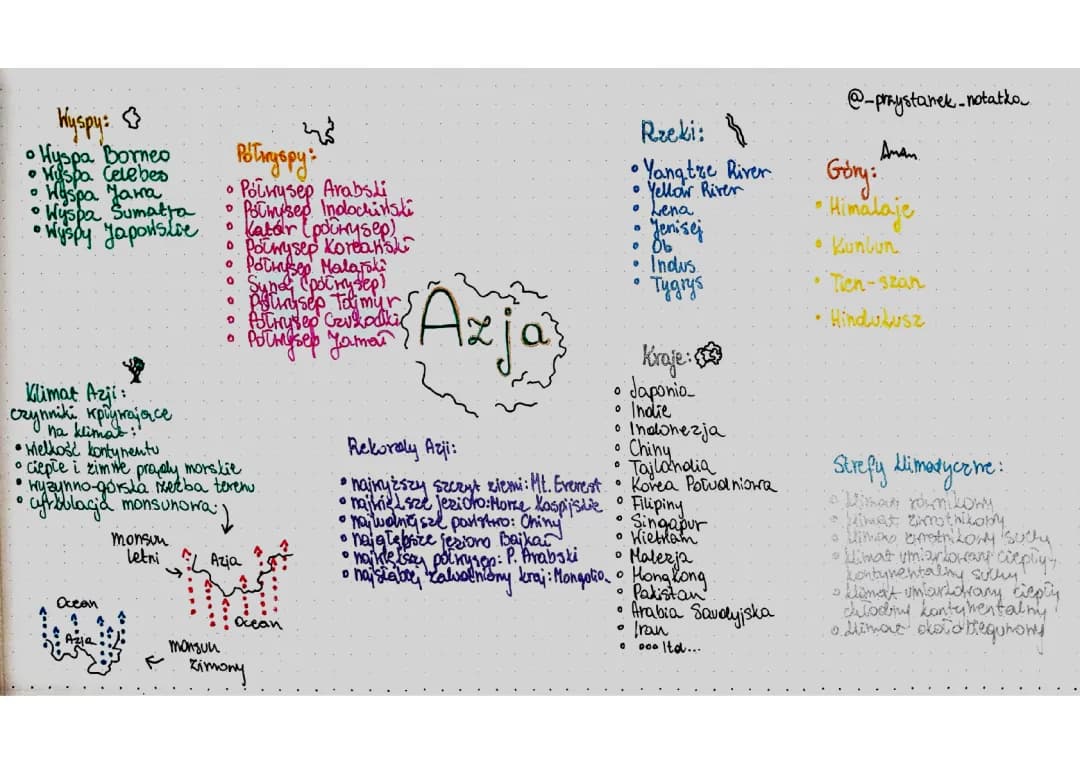 @_przystanek_notatka
Wyspy:
• Wyspa Borneo
• Wyspa Celebes
• Wyspa Jawa
• Wyspa Sumatra
• Wyspy Japońskie
Półwyspy:
• Półwysep Arabski
• Półwysep Indochiński
• Katar (półwysep)
• Półwysep Koreański
• Półwysep Malajski
• Synaj (półwysep)
• Półwysep Tajmyr
• Półwysep Czukocki
• Półwysep Jamał
Azja
Rzeki:
• Yangtze River
• Yellow River
• Lena
• Jenisej
• Ob
• Indus
• Tygrys
Góry:
• Himalaje
• Kunlun
• Tien-szan
• Hindukusz
Klimat Azji:
czynniki wpływające
na klimat:
• wielkość kontynentu
• ciepłe i zimne prądy morskie
• wyżynno-górska rzeźba terenu
• cyrkulacja monsunowa:
monsun
letni
Azja
Ocean
Ocean
Azja
monsun
zimowy
Rekordy Azji:
• najwyższy szczyt ziemi: Mt. Everest
• największe jezioro: Morze Kaspijskie
• najludniejsze państwo: Chiny
• najgłębsze jezioro Bajkał
• największy półwysep: P. Arabski
• najsłabiej zaludniony kraj: Mongolia
Kraje:
• Japonia
• Indie
• Indonezja
• Chiny
• Tajlandia
• Korea Południowa
• Filipiny
• Singapur
• Wietnam
• Malezja
• Hongkong
• Pakistan
• Arabia Saudyjska
• Iran
• ... itd...
Strefy klimatyczne:
• klimat równikowy
• klimat zwrotnikowy
• klimat zwrotnikowy suchy
• klimat umiarkowany ciepły,
kontynentalny suchy
• klimat umiarkowany ciepły
chłodny kontynentalny
• klimat okołobiegunowy